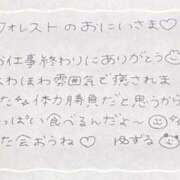 フォレストのおにいさま♡
お仕事終わりにありがとう
ふわほわ雰囲気で癒されま
たな体力勝負だと思うから
っぱい食べるんだよ〜
た会おうね♡ ゆずる